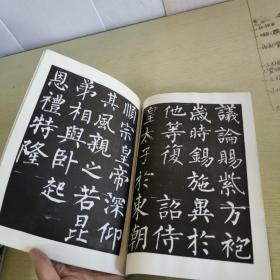 議論賜紫方袍
歲時錫施異於
他等復 詔侍
皇太子於東朝
順宗皇帝深仰
其風親之若昆
弟相與卧起
恩禮特隆